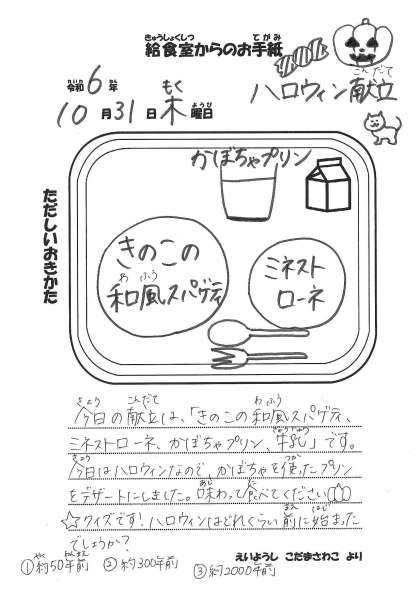 給食室からのお手紙
令和6年
10月31日木曜日
ハロウィン献立
ただしいおきかた
かぼちゃプリン
きのこの
和風スパゲティ
ミネスト
ローネ
今日の献立は、「きのこの和風スパゲティ、
ミネストローネ、かぼちゃプリン、牛乳」です。
今日はハロウィンなので、かぼちゃを使ったプリン
をデザートにしました。味わって食べてください
☆クイズです!ハロウィンはどれくらい前に始まった
でしょうか?
①約50年前 ②約300年前 ③約2000年前
えいようし こだまさわこ より